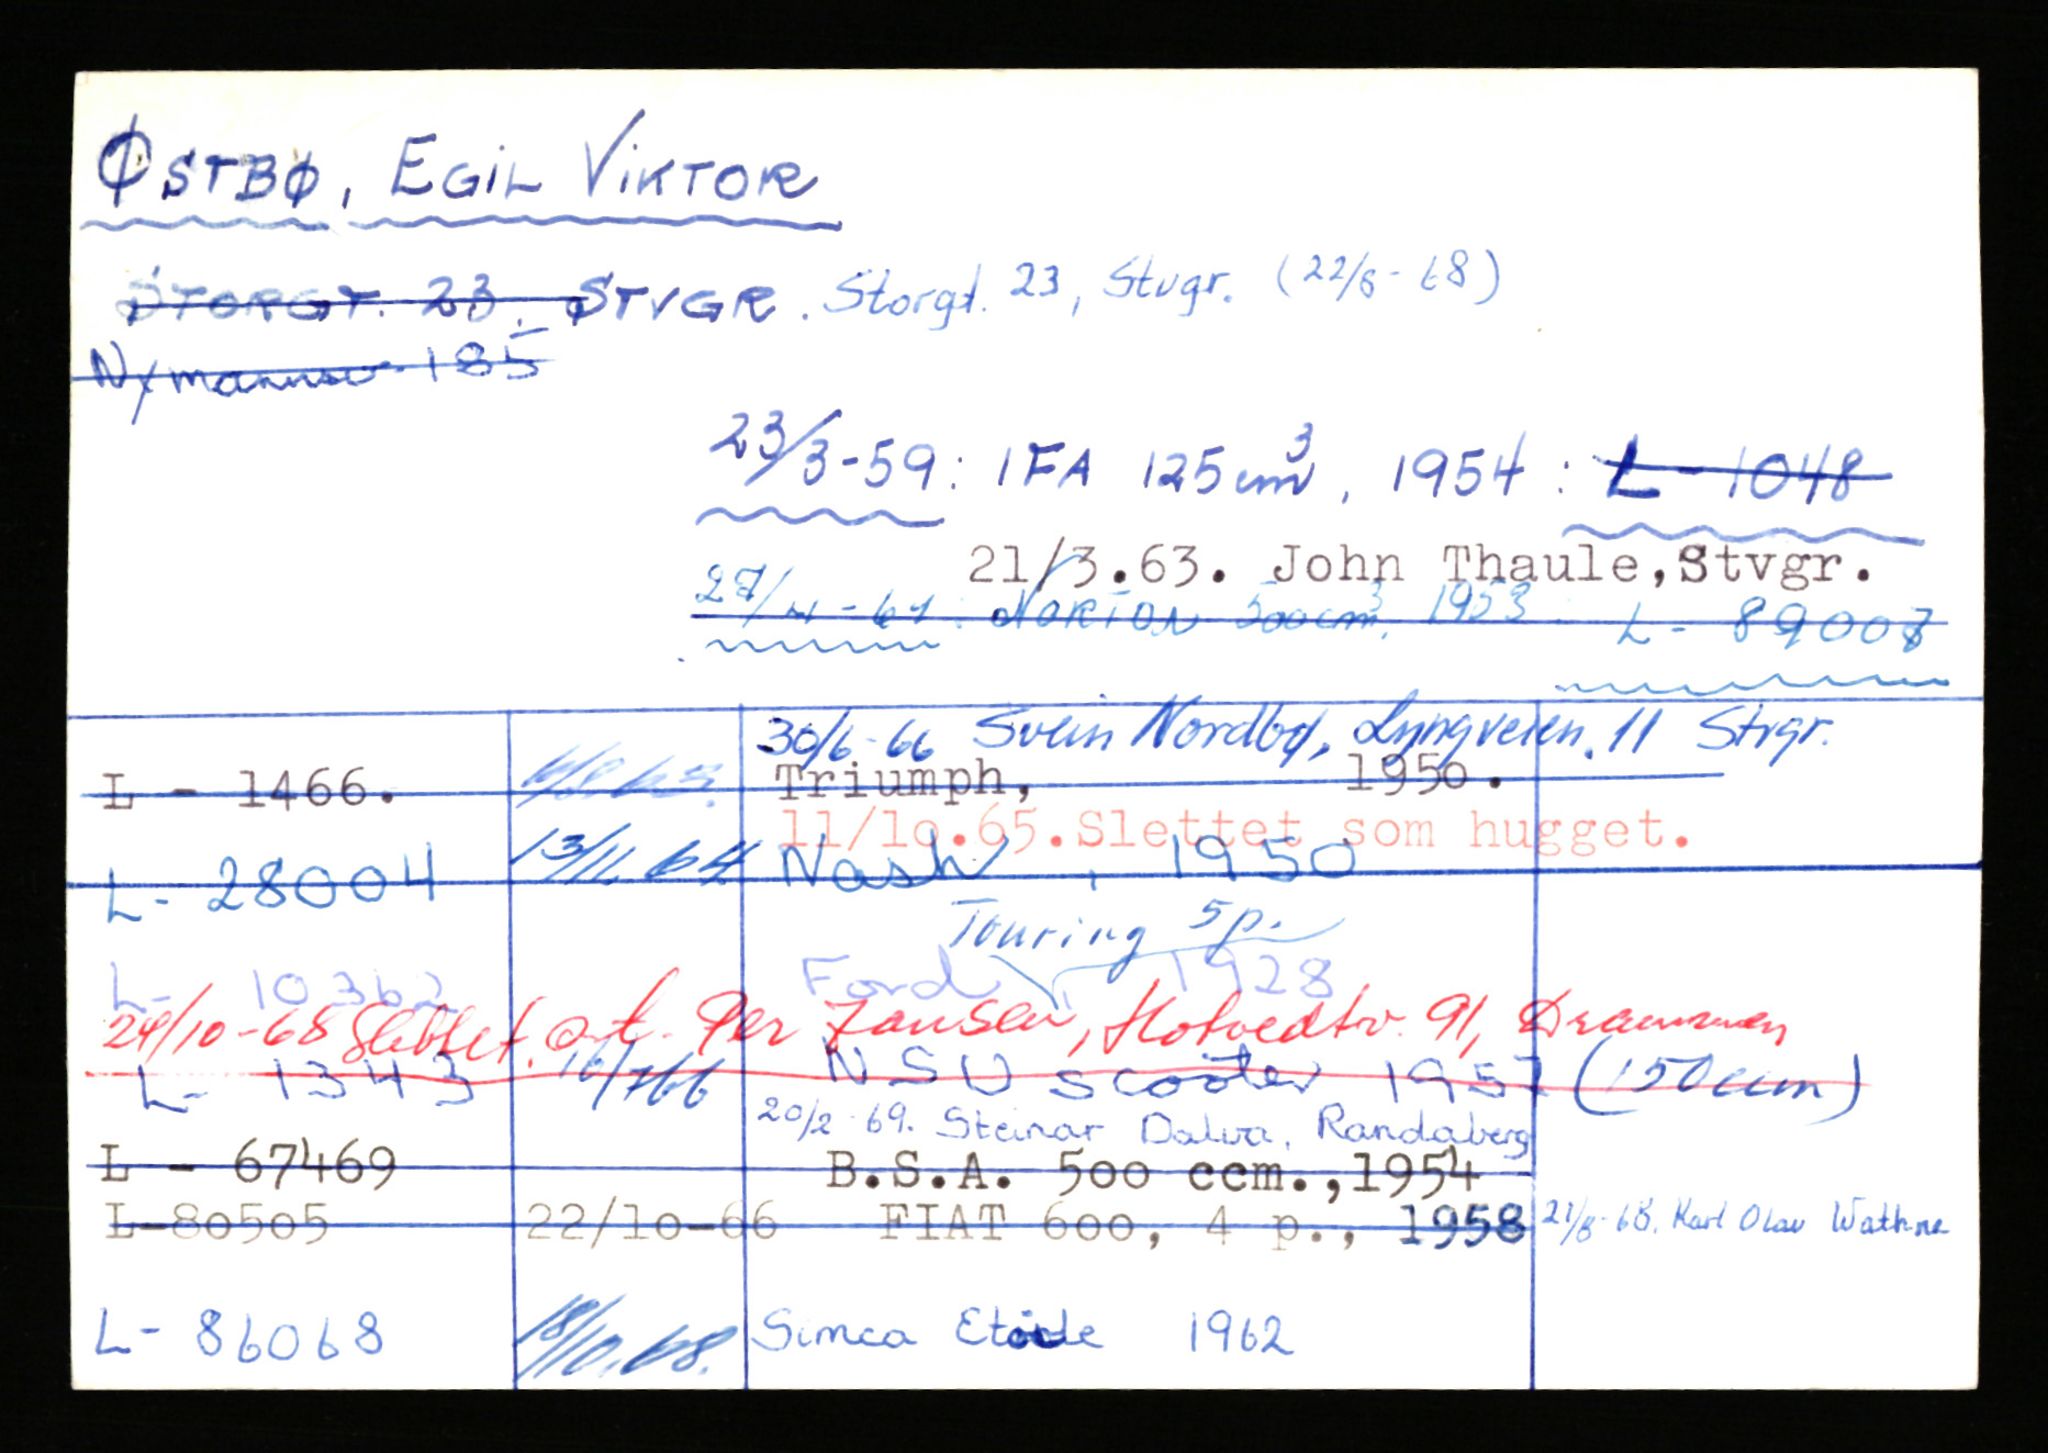 ØSTBØ, EGIL VIKTOR
STORGT. 23. STVGR. Storgt. 23, Stvgr. (22/8-68)
Nymannsv. 185
23/3-59: IFA 125 cm³, 1954: L-1048
21/3.63. John Thaule,Stvgr.
27/4-61: NORTON 500 cm³, 1953 L-89007
30/6-66 Svein Nordbø, Lyngveien 11 Stvgr.
L - 1466. Triumph, 1950.
11/10.65. Slettet som hugget.
L- 28004 13/11.64 Nash, 1950
Touring 5p.
L- 10362 Ford 1928
24/10-68 Slettet. o.t. Per Jansen, Hotvedtv. 91, Drammen
L- 1343 16/766 NSU scooter 1957 (150ccm)
20/2-69. Steinar Dalva, Randaberg
L - 67469 B.S.A. 500 ccm.,1954
L-80505 22/10-66 FIAT 600, 4 p., 1958 21/8-68. Karl Olav Wathne
L- 86068 18/10.68. Simca Etoile 1962